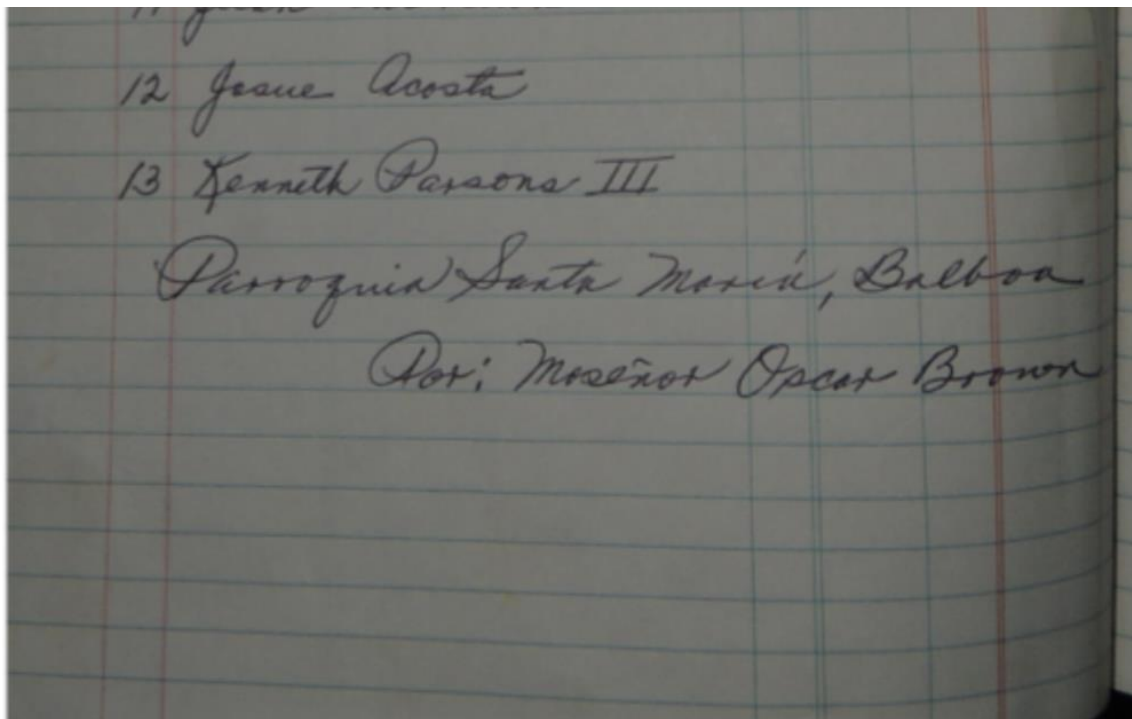 12 Josue Acosta
13 Kenneth Parsons III
Parroquia Santa María, Balboa
Por: Moseñor Oscar Brown